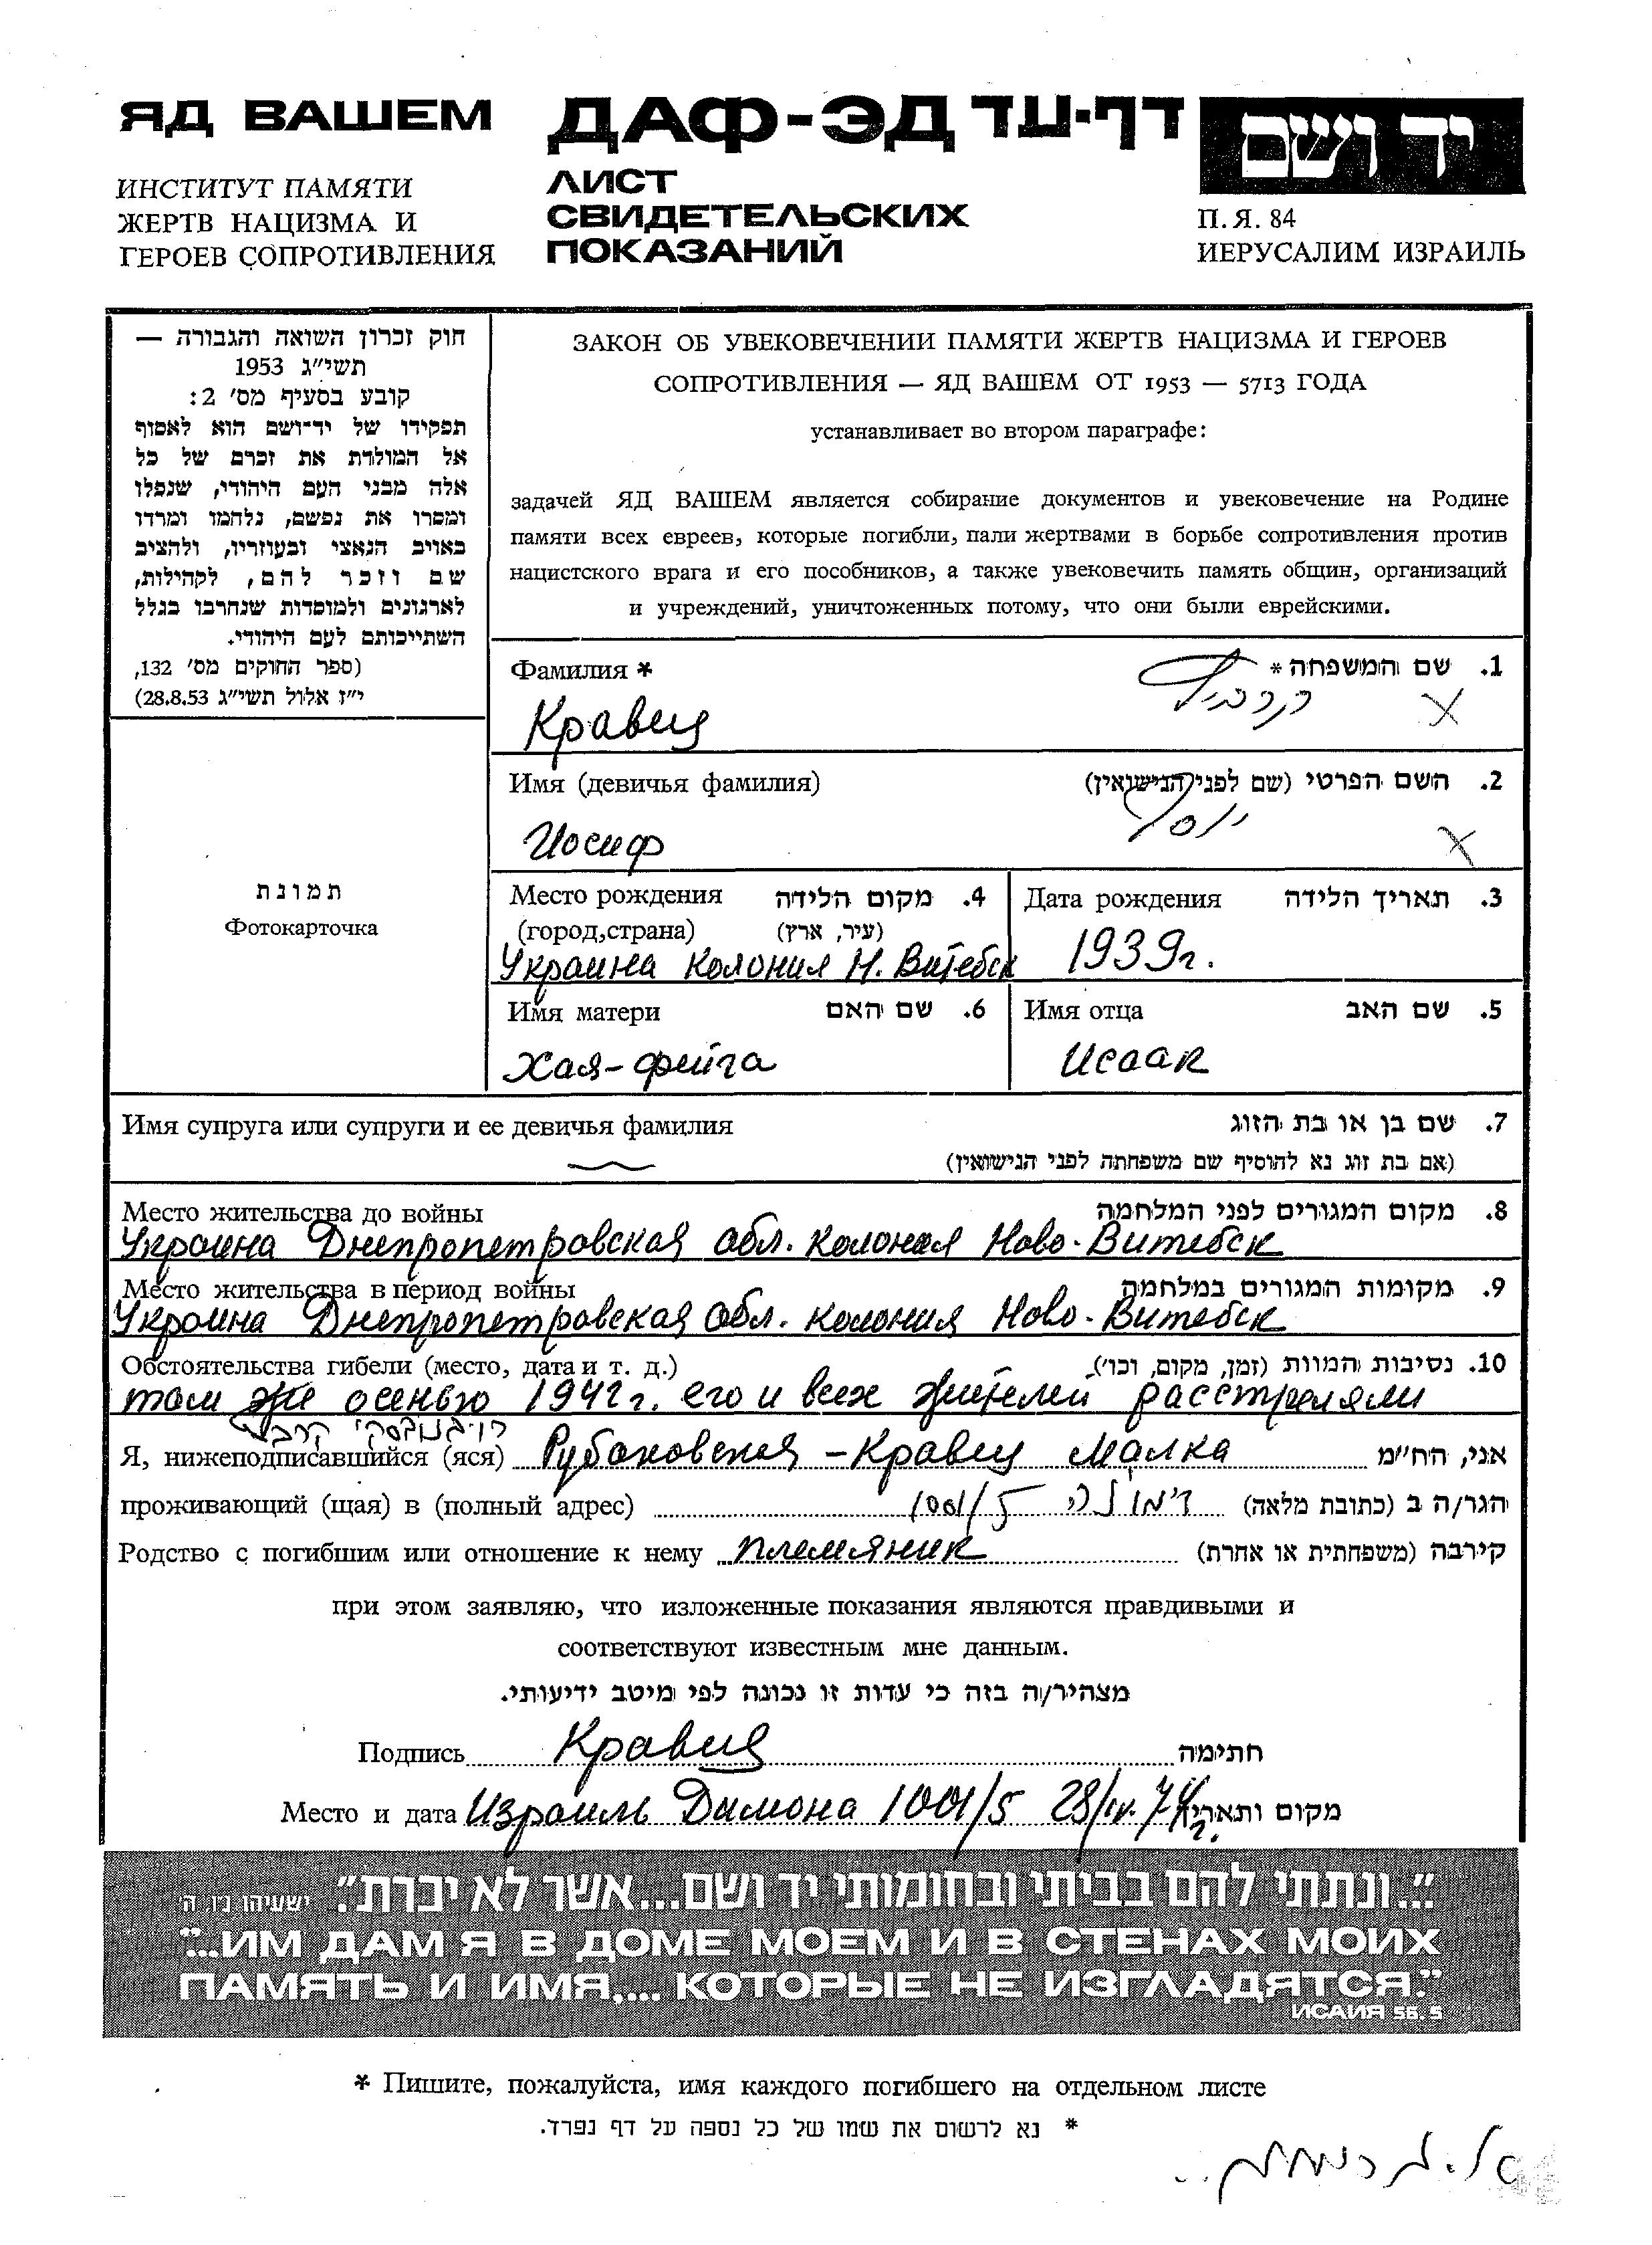 ЯД ВАШЕМ
ИНСТИТУТ ПАМЯТИ
ЖЕРТВ НАЦИЗМА И
ГЕРОЕВ СОПРОТИВЛЕНИЯ
ДАФ-ЭД דף-עד
ЛИСТ
СВИДЕТЕЛЬСКИХ
ПОКАЗАНИЙ
יד ושם
П.Я. 84
ИЕРУСАЛИМ ИЗРАИЛЬ
חוק זכרון השואה והגבורה —
תשי״ג 1953
קובע בסעיף מס׳ 2:
תפקידו של יד־ושם הוא לאסוף
אל המולדת את זכרם של כל
אלה מבני העם היהודי, שנפלו
ומסרו את נפשם, נלחמו ומרדו
באויב הנאצי ובעוזריו, ולהציב
שם וזכר להם, לקהילות,
לארגונים ולמוסדות שנחרבו בגלל
השתייכותם לעם היהודי.
(ספר החוקים מס׳ 132,
י״ז אלול תשי״ג 28.8.53)
ЗАКОН ОБ УВЕКОВЕЧЕНИИ ПАМЯТИ ЖЕРТВ НАЦИЗМА И ГЕРОЕВ
СОПРОТИВЛЕНИЯ — ЯД ВАШЕМ ОТ 1953 — 5713 ГОДА
устанавливает во втором параграфе:
задачей ЯД ВАШЕМ является собирание документов и увековечение на Родине
памяти всех евреев, которые погибли, пали жертвами в борьбе сопротивления против
нацистского врага и его пособников, а также увековечить память общин, организаций
и учреждений, уничтоженных потому, что они были еврейскими.
תמונת
Фотокарточка
Фамилия * 1. שם המשפחה *
Кравец
Имя (девичья фамилия) 2. השם הפרטי (שם לפני הנישואין)
Иосиф יוסף
Место рождения 4. מקום הלידה
(город,страна) (עיר, ארץ)
Украина колония Н. Витебск
Дата рождения 3. תאריך הלידה
1939г.
Имя матери 6. שם האם
Хая-фейга
Имя отца 5. שם האב
Исаак
Имя супруга или супруги и ее девичья фамилия 7. שם בן או בת הזוג
(אם בת זוג נא להוסיף שם משפחתה לפני הנישואין)
Место жительства до войны 8. מקום המגורים לפני המלחמה
Украина Днепропетровская обл. колония Ново-Витебск
Место жительства в период войны 9. מקומות המגורים במלחמה
Украина Днепропетровская обл. колония Ново-Витебск
Обстоятельства гибели (место, дата и т. д.) 10. נסיבות המוות (זמן, מקום, וכו׳)
там же осенью 1942г. его и всех жителей расстреляли
Я, нижеподписавшийся (яся) Рубановская-Кравец Малка אני, הח״מ
проживающий (щая) в (полный адрес) 1001/5 דימונה הגר/ה ב (כתובת מלאה)
Родство с погибшим или отношение к нему племяник קירבה (משפחתית או אחרת)
при этом заявляю, что изложенные показания являются правдивыми и
соответствуют известным мне данным.
מצהיר/ה בזה כי עדות זו נכונה לפי מיטב ידיעותי.
Подпись Кравец חתימה
Место и дата Израиль Димона 1001/5 28/IV.74г. מקום ותאריך
״...ונתתי להם בביתי ובחומותי יד ושם...אשר לא יכרת״. ישעיהו נ״ו, ה׳
"...ИМ ДАМ Я В ДОМЕ МОЕМ И В СТЕНАХ МОИХ
ПАМЯТЬ И ИМЯ,... КОТОРЫЕ НЕ ИЗГЛАДЯТСЯ."
ИСАИЯ 56. 5
* Пишите, пожалуйста, имя каждого погибшего на отдельном листе
* נא לרשום את שמו של כל נספה על דף נפרד.